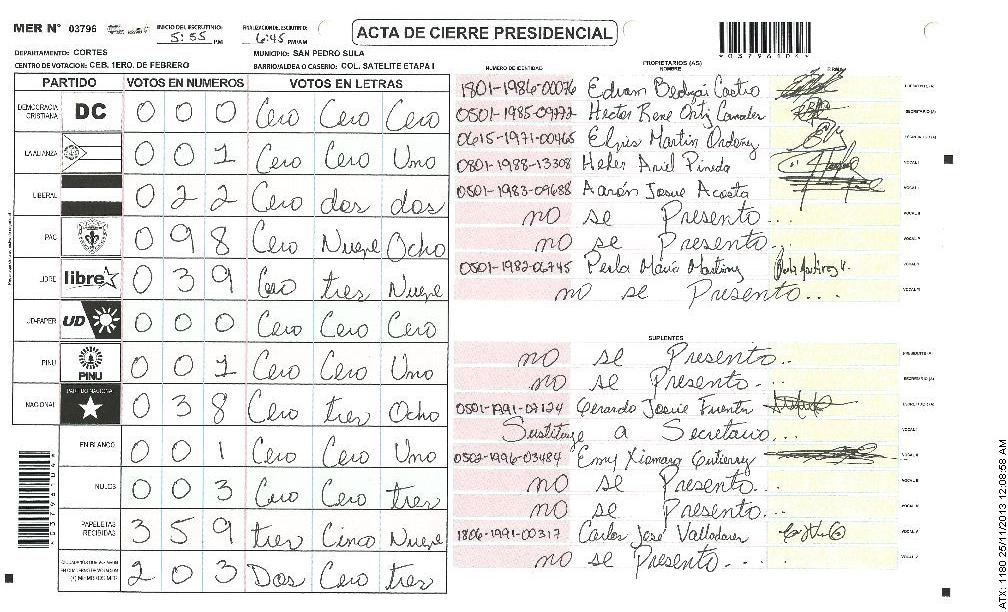 MER N° 03796
INICIO DEL ESCRUTINIO: 5:55 PM
FINALIZACION DE ESCRUTINIO: 6:45 PM/AM
ACTA DE CIERRE PRESIDENCIAL
*03796104*
DEPARTAMENTO: CORTES
MUNICIPIO: SAN PEDRO SULA
CENTRO DE VOTACION: CEB. 1ERO. DE FEBRERO
BARRIO/ALDEA O CASERIO: COL. SATELITE ETAPA I
PARTIDO VOTOS EN NUMEROS VOTOS EN LETRAS
DEMOCRACIA CRISTIANA DC 0 0 0 Cero Cero Cero
LA ALIANZA 0 0 1 Cero Cero Uno
LIBERAL 0 2 2 Cero dos dos
PAC 0 9 8 Cero Nueve Ocho
LIBRE libre 0 3 9 Cero tres Nueve
UD-FAPER UD 0 0 0 Cero Cero Cero
PINU PINU 0 0 1 Cero Cero Uno
NACIONAL PARTIDO NACIONAL 0 3 8 Cero tres Ocho
EN BLANCO 0 0 1 Cero Cero Uno
NULOS 0 0 3 Cero Cero tres
PAPELETAS RECIBIDAS 3 5 9 tres Cinco Nueve
2 0 3 Dos Cero tres
PROPIETARIOS (AS)
NUMERO DE IDENTIDAD NOMBRE FIRMA
1801-1986-00076 Edvan Castro
0501-1985-09772 Hector Rene Ortiz
SECRETARIO (A)
0615-1971-00465 Martin Ordoñez
0801-1988-13308 Heber Ariel Pineda VOCAL I
0501-1983-09688 Aarón Josue Acosta
no se Presento... VOCAL III
no se Presento... VOCAL IV
0501-1982-06745 Perla Maria Martinez VOCAL V
no se Presento... VOCAL VI
SUPLENTES
no se Presento... PRESIDENTE (A)
no se Presento... SECRETARIO (A)
0501-1991-07124 Gerardo Josue Fuentes
Sustituye a Secretario... VOCAL I
0502-1996-03484 Emy Xiomara Gutierrez VOCAL II
no se Presento... VOCAL III
no se Presento...
1806-1991-00317 Carlos José Valladares
no se Presento...
ATX: 1180 25/11/2013 12:08:58 AM